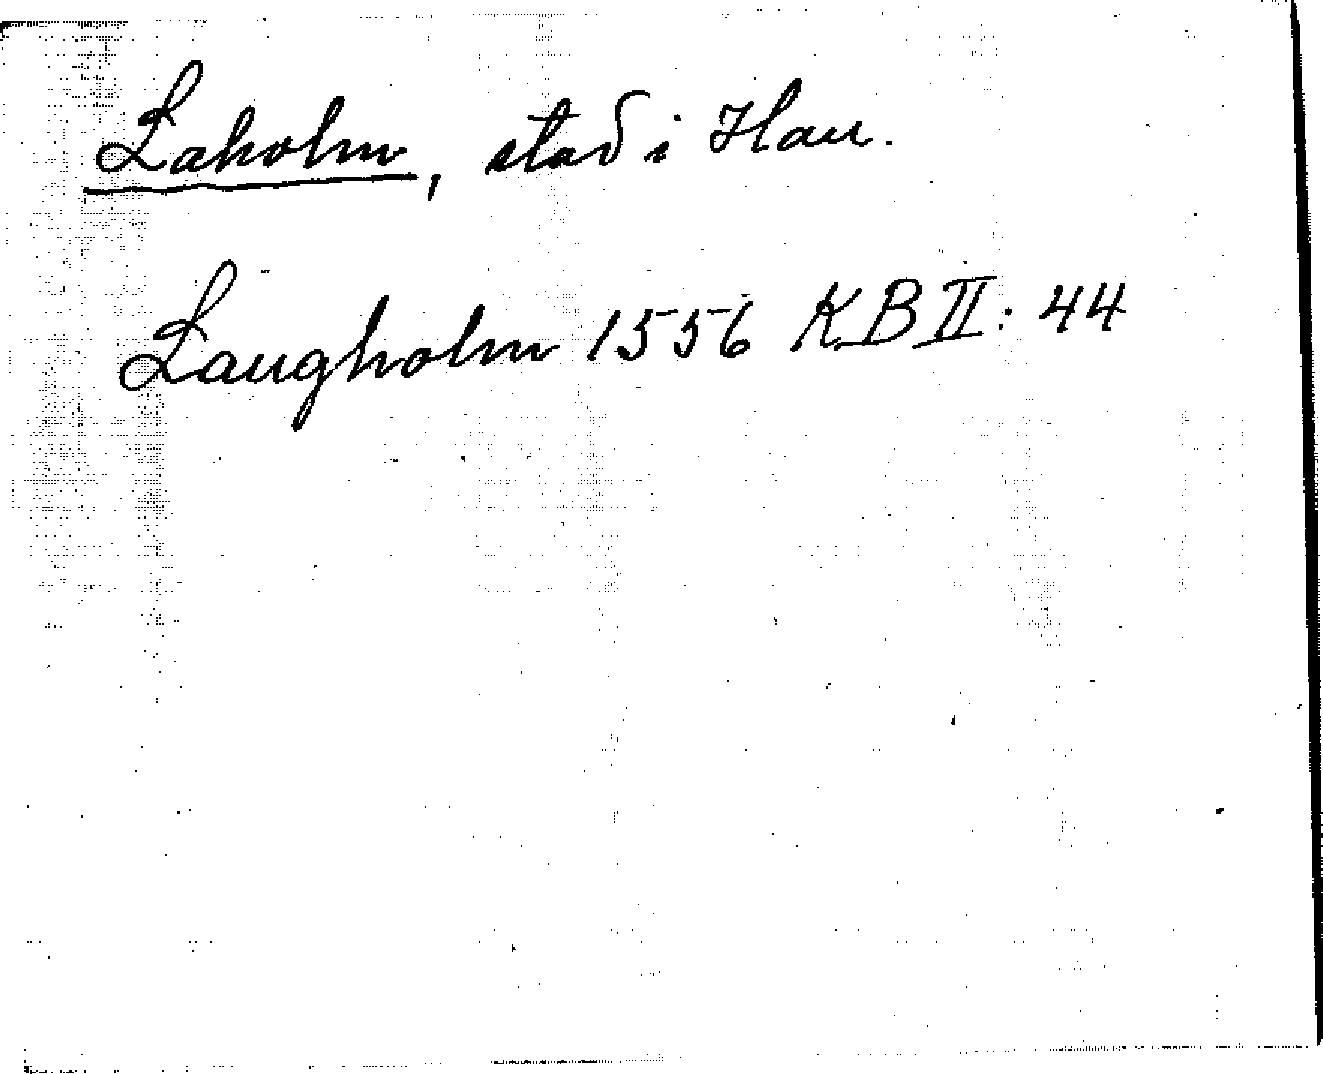 Laholm, stad i Hall.
Laugholm 1556 KB II: 44